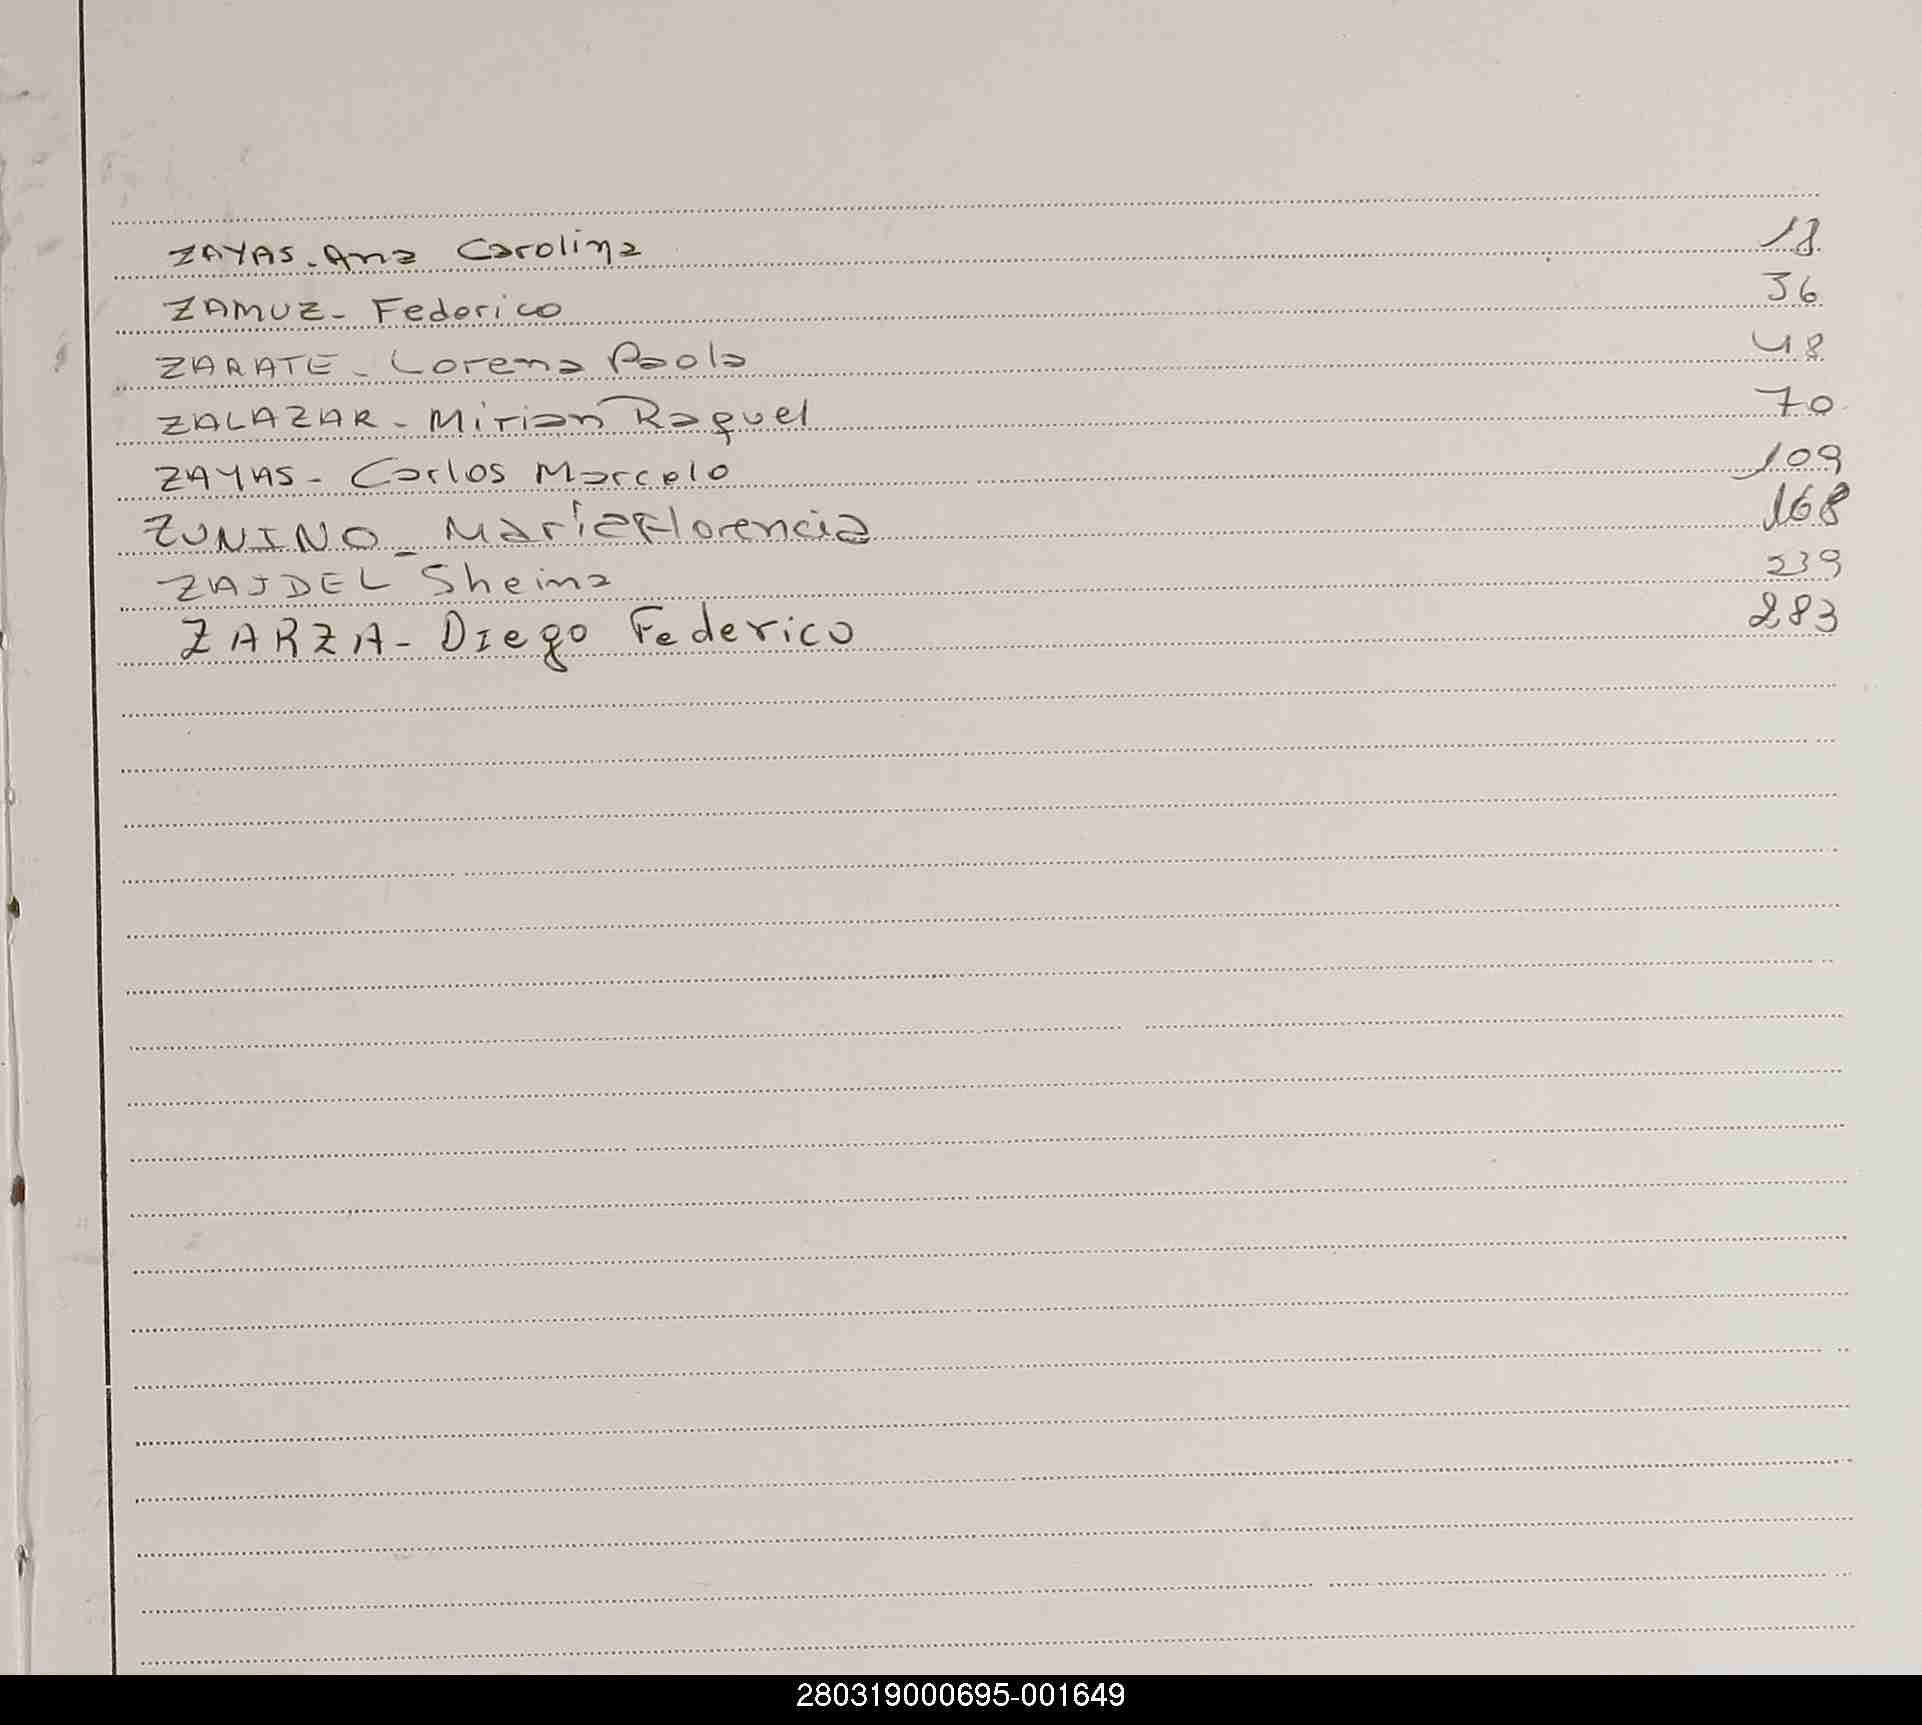 ZAYAS - Ana Carolina 18
ZAMUZ - Federico 36
ZARATE - Lorena Paola 48
ZALAZAR - Mirian Raquel 70
ZAYAS - Carlos Marcelo 109
ZUNINO - María Florencia 168
ZAJDEL Sheina 239
ZARZA - Diego Federico 283
280319000695-001649